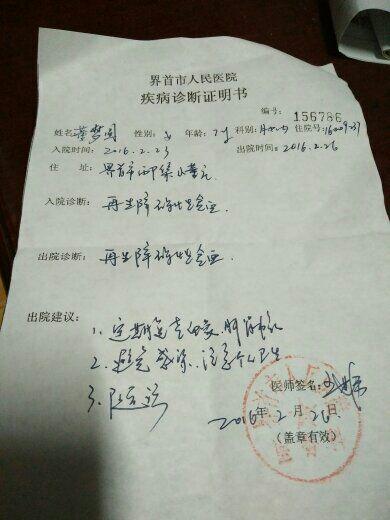 界首市人民医院
疾病诊断证明书
编号: 156786
姓名 性别: 女 年龄: 7岁 科别: 住院号:
入院时间: 2016.2.23 出院时间: 2016.2.26
住 址: 界首市
入院诊断: 再生障碍性贫血.
出院诊断: 再生障碍性贫血.
出院建议:
1. 定期复查血象.肝肾功
2. 避免感染.注意个人卫生
3. 随诊
医师签名:
2016年2月26日
(盖章有效)